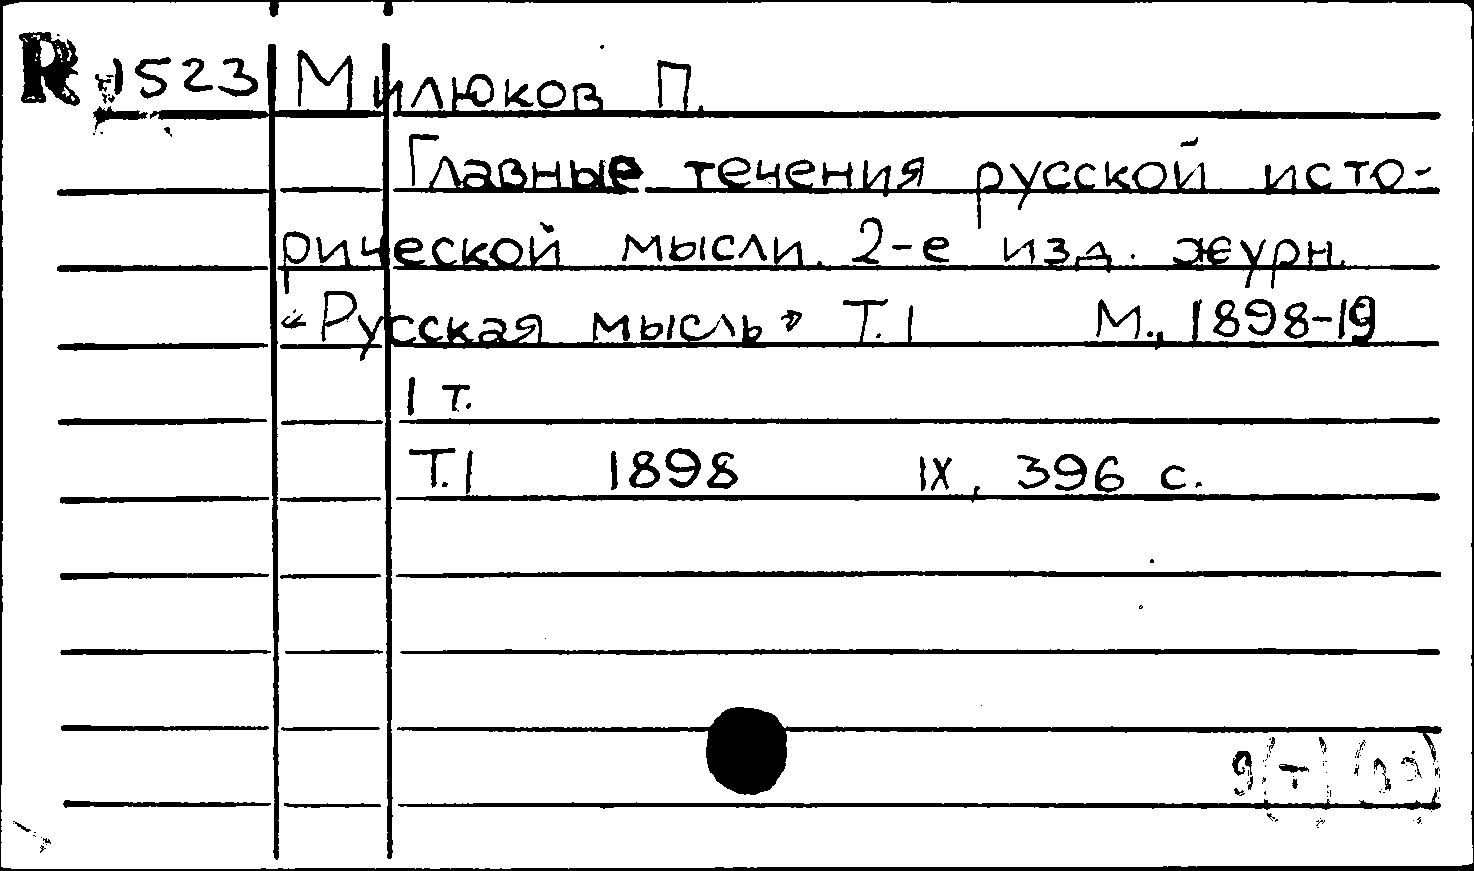 R 1523 Милюков П.
Главные течения русской исто-
рической мысли. 2-е изд. журн.
"Русская мысль" Т. I М., 1898-19
1 т.
Т. I 1898 IX, 396 с.